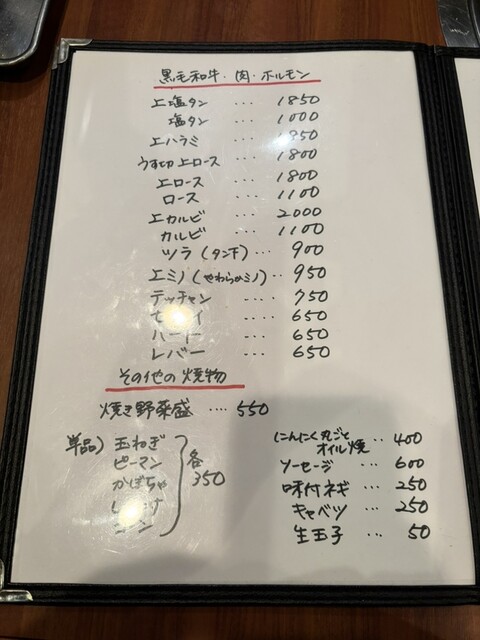 黒毛和牛・肉・ホルモン
上塩タン … 1850
塩タン … 1000
上ハラミ … 1850
うす切上ロース … 1800
上ロース … 1800
ロース … 1100
上カルビ … 2000
カルビ … 1100
ツラ(タン下) … 900
上ミノ(やわらかミノ) ‥ 950
テッチャン ‥‥ 750
‥‥ 650
ハート … 650
レバー … 650
その他の焼物
焼き野菜盛 ‥‥ 550
単品) 玉ねぎ
ピーマン
かぼちゃ
各350
にんにく丸ごとオイル焼 ‥ 400
ソーセージ … 600
味付ネギ … 250
キャベツ … 250
生玉子 … 50